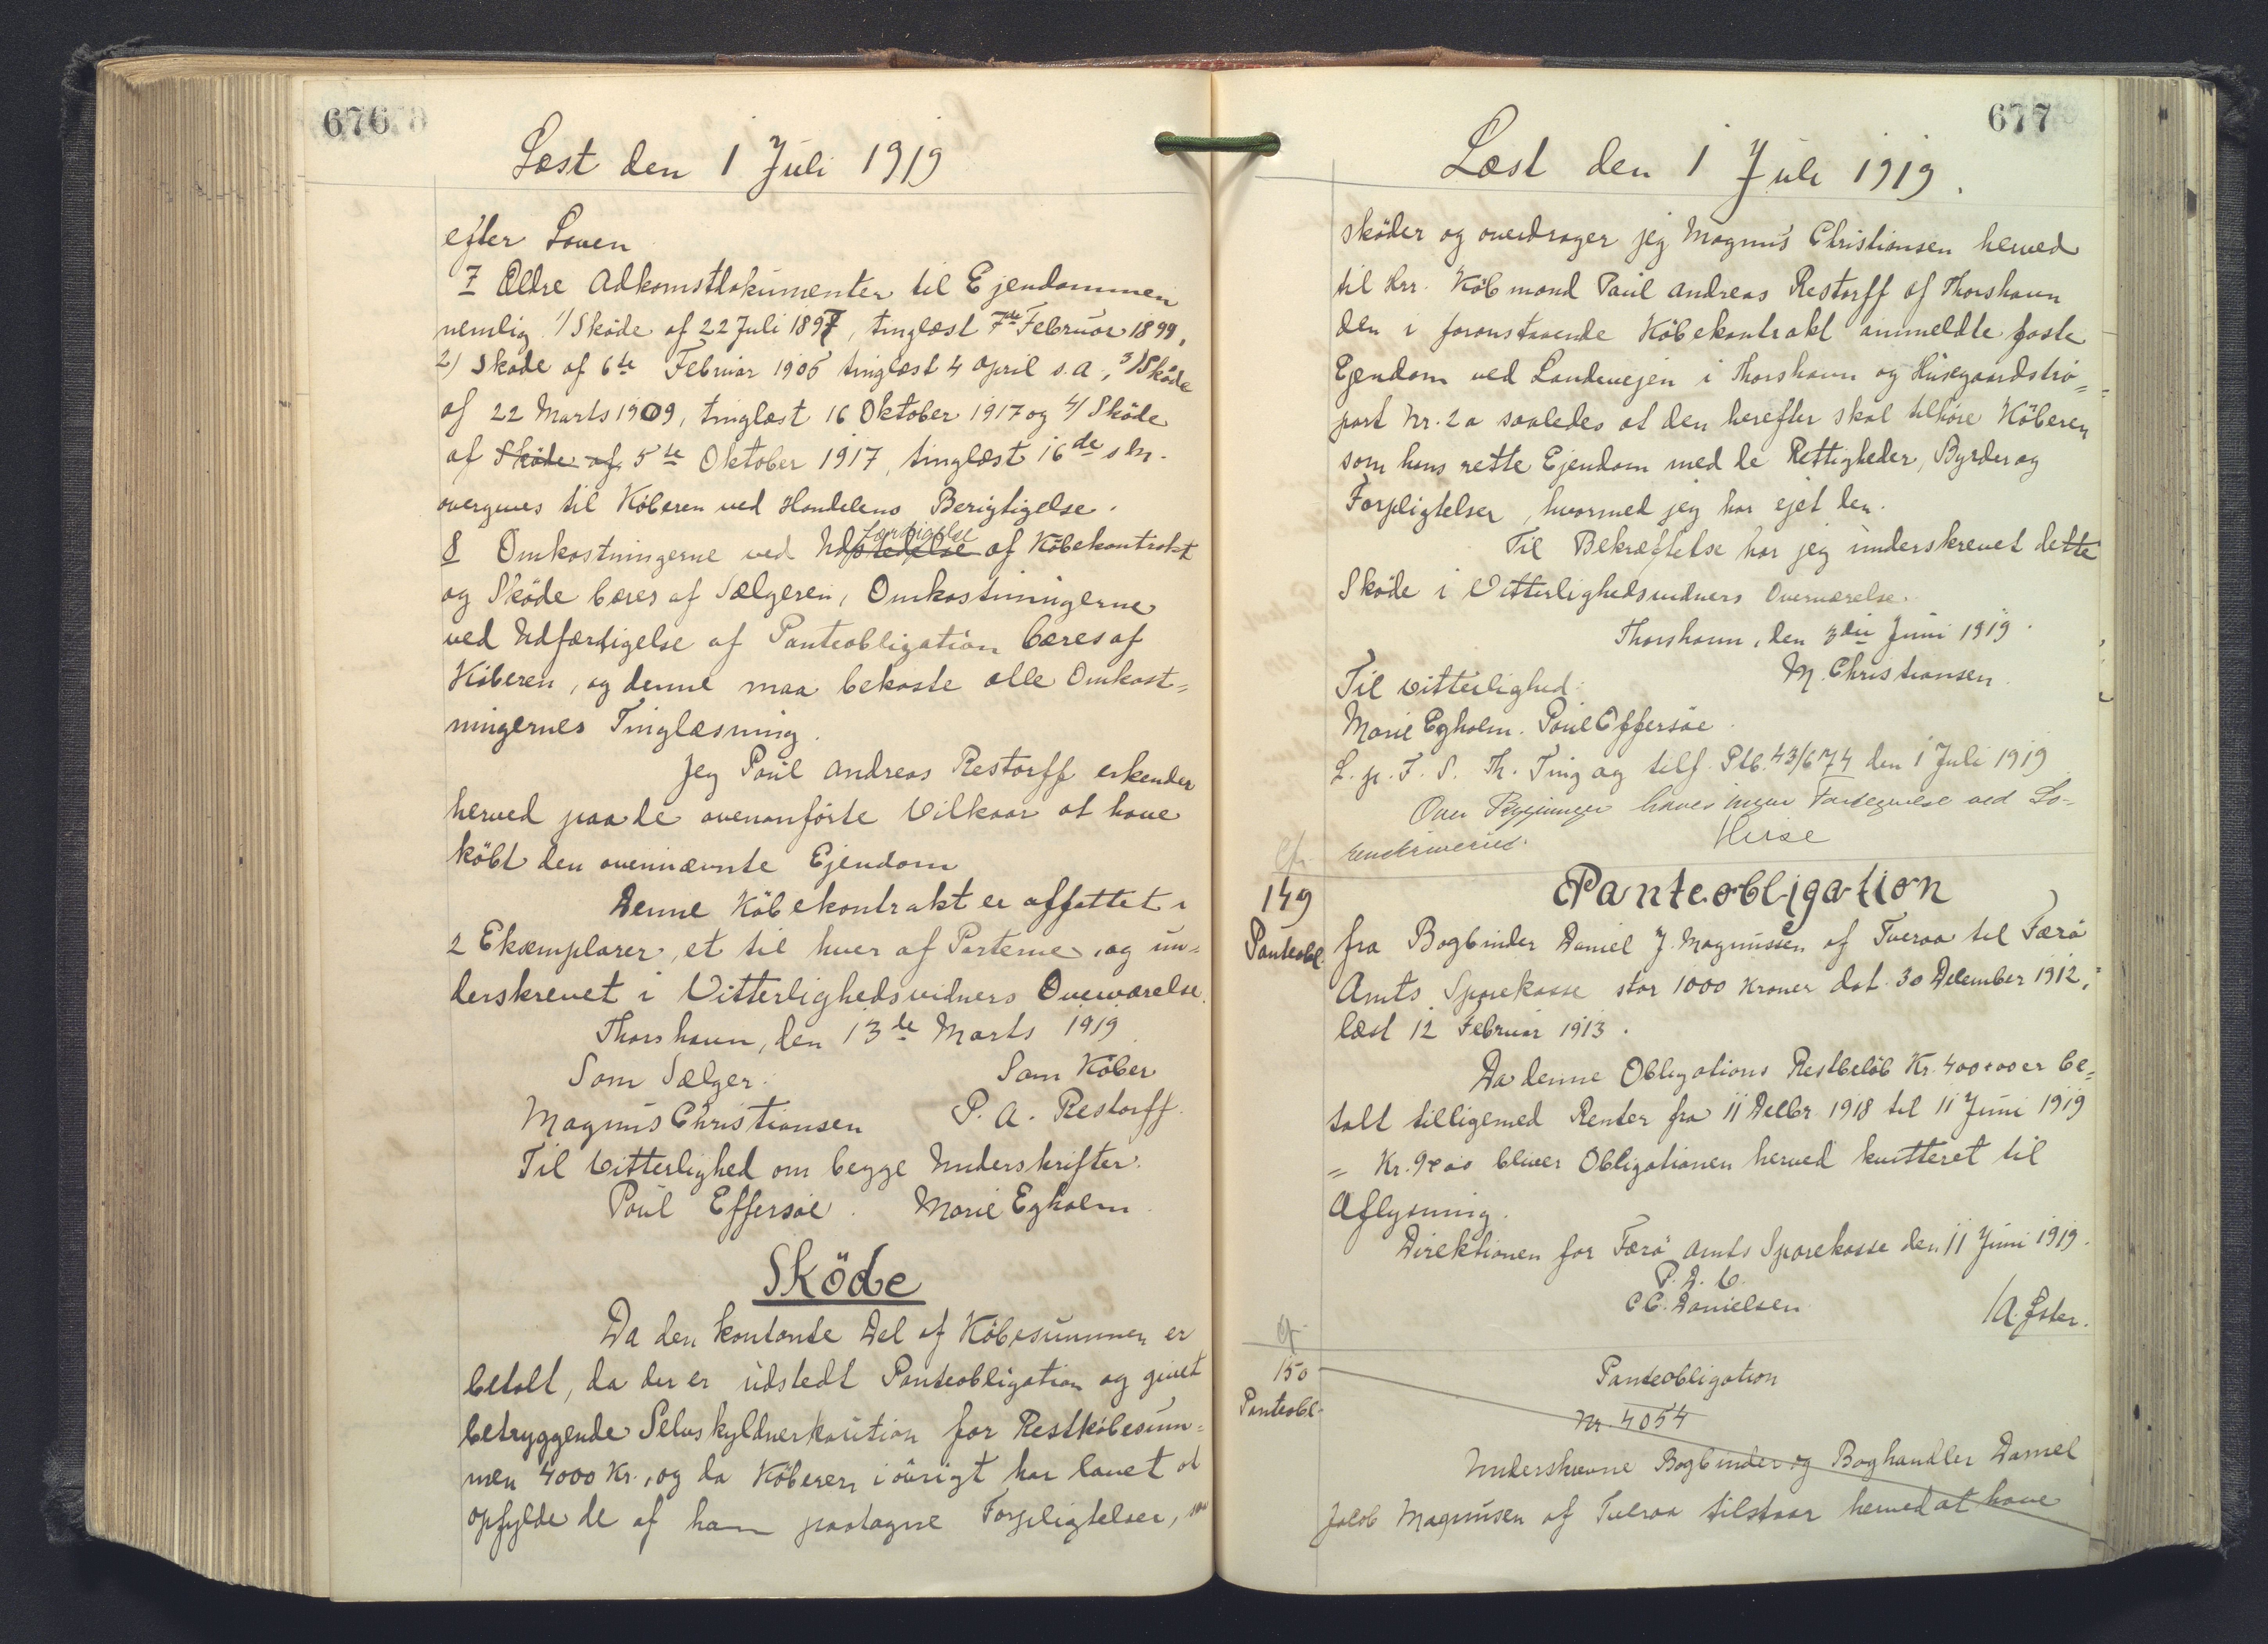 676
Læst den 1 Juli 1919
efter Loven
7 Ældre Adkomstdokumenter til Ejendommen
nemlig 1/ Sköde af 22 Juli 1897, tinglæst 7de Februar 1899,
2) Sköde af 6te Februar 1905 tinglæst 4 April s.a., 3/ Sköde
af 22 Marts 1909, tinglæst 16 Oktober 1917 og 4/ Sköde
af Sköde af 5te Oktober 1917, tinglæst 16de s.m.
overgives til Köberen ved Handelens Berigtigelse.
8 Omkostningerne ved Udfærdigelse af Köbekontrakt
og Sköde bæres af Sælgeren, Omkostningerne
ved Udfærdigelse af Panteobligation bæres af
Köberen, og denne maa bekoste alle Omkost=
ningernes Tinglæsning.
Jeg Poul Andreas Restorff erkender
herved paa de ovenanförte Vilkaar at have
köbt den ovennævnte Ejendom
Denne Köbekontrakt er affattet i
2 Eksemplarer, et til hver af Parterne, og un=
derskrevet i Vitterlighedsvidners Overværelse.
Thorshavn, den 13de Marts 1919
Som Sælger. Som Köber
Magnus Christiansen P. A. Restorff.
Til Vitterlighed om begge Underskrifter.
Poul Effersøe. Marie Egholm.
Sköde
Da den kontante Del af Köbesummen er
betalt, da der er udstedt Panteobligation og givet
betryggende Selvskyldnerkaution for Restköbesum=
men 4000 Kr., og da Köberen i övrigt har lovet at
opfylde de af ham paatagne Forpligtelser, saa
677
Læst den 1 Juli 1919.
sköder og overdrager jeg Magnus Christiansen herved
til Hrr. Köbmand Paul Andreas Restorff af Thorshavn
den i foranstaaende Köbekontrakt ommeldte faste
Ejendom ved Landevejen i Thorshavn og Husegaardströ=
part Nr. 2a saaledes at den herefter skal tilhöre Köberen
som hans rette Ejendom med de Rettigheder, Byrder og
Forpligtelser, hvormed jeg har ejet den.
Til Bekræftelse har jeg underskrevet dette
Sköde i Vitterlighedsvidners Overværelse.
Thorshavn, den 3die Juni 1919.
M. Christiansen.
Til Vitterlighed:
Marie Egholm. Poul Effersøe.
L. p. F. S. Th. Ting og tilf. Ptb. 43/674 den 1 Juli 1919
Over Bygninger haves ingen Fortegnelse ved So=
renskriveriet.
149
Panteobl.
Panteobligation
fra Bogbinder Daniel J. Magnussen af Tveraa til Færö
Amts Sparekasse stor 1000 Kroner dat. 30 December 1912,
læst 12 Februar 1913.
Da denne Obligations Restbelöb Kr. 400+00 er be=
talt tilligemed Renter fra 11 Decbr. 1918 til 11 Juni 1919
= Kr. 9+00 bliver Obligationen herved kvitteret til
Aflysning.
Direktionen for Færö Amts Sparekasse den 11 Juni 1919.
C.C. Danielsen
150
Panteobl.
Panteobligation
Nr. 4054
Underskrevne Bogbinder og Boghandler Daniel
Jacob Magnusen af Tveraa tilstaar herved at have